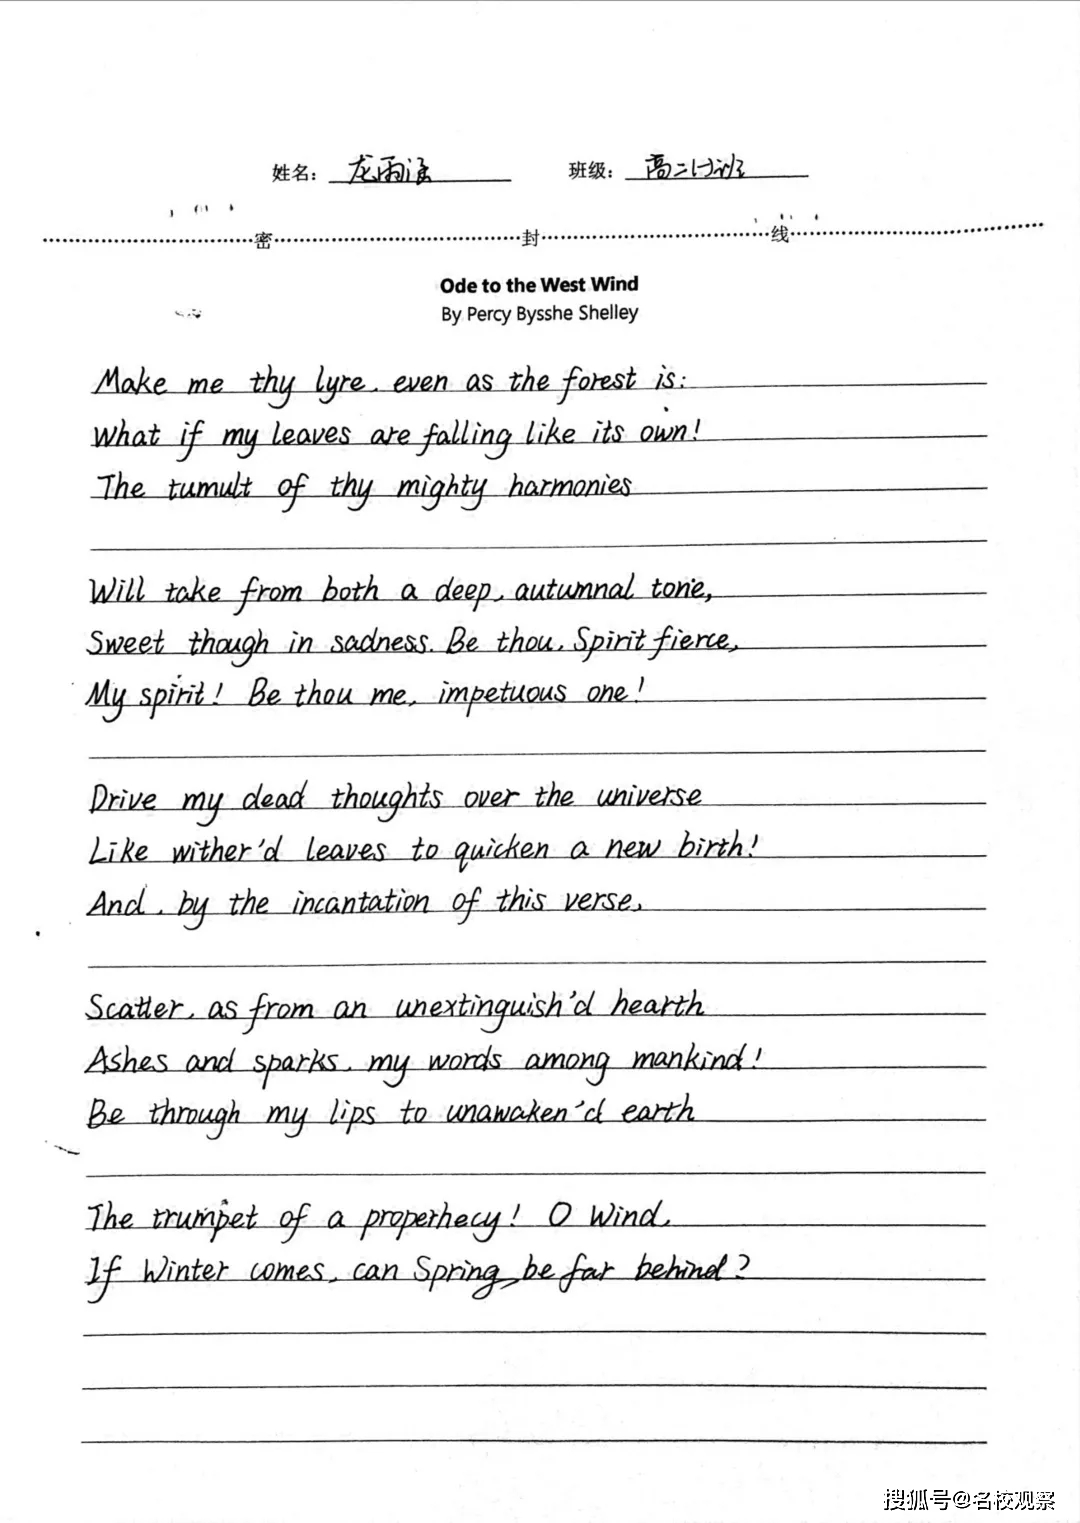 姓名： 龙雨 班级： 高二
密 封 线
Ode to the West Wind
By Percy Bysshe Shelley
Make me thy lyre, even as the forest is:
What if my leaves are falling like its own!
The tumult of thy mighty harmonies
Will take from both a deep, autumnal tone,
Sweet though in sadness. Be thou, Spirit fierce,
My spirit! Be thou me, impetuous one!
Drive my dead thoughts over the universe
Like wither'd leaves to quicken a new birth!
And, by the incantation of this verse,
Scatter, as from an unextinguish'd hearth
Ashes and sparks, my words among mankind!
Be through my lips to unawaken'd earth
The trumpet of a properhecy! O Wind,
If Winter comes, can Spring be far behind?
搜狐号@名校观察